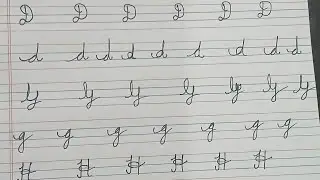 D D D D D D
d d d d d d d d d
G G G G G G G
g g g g g g g
H H H H H H